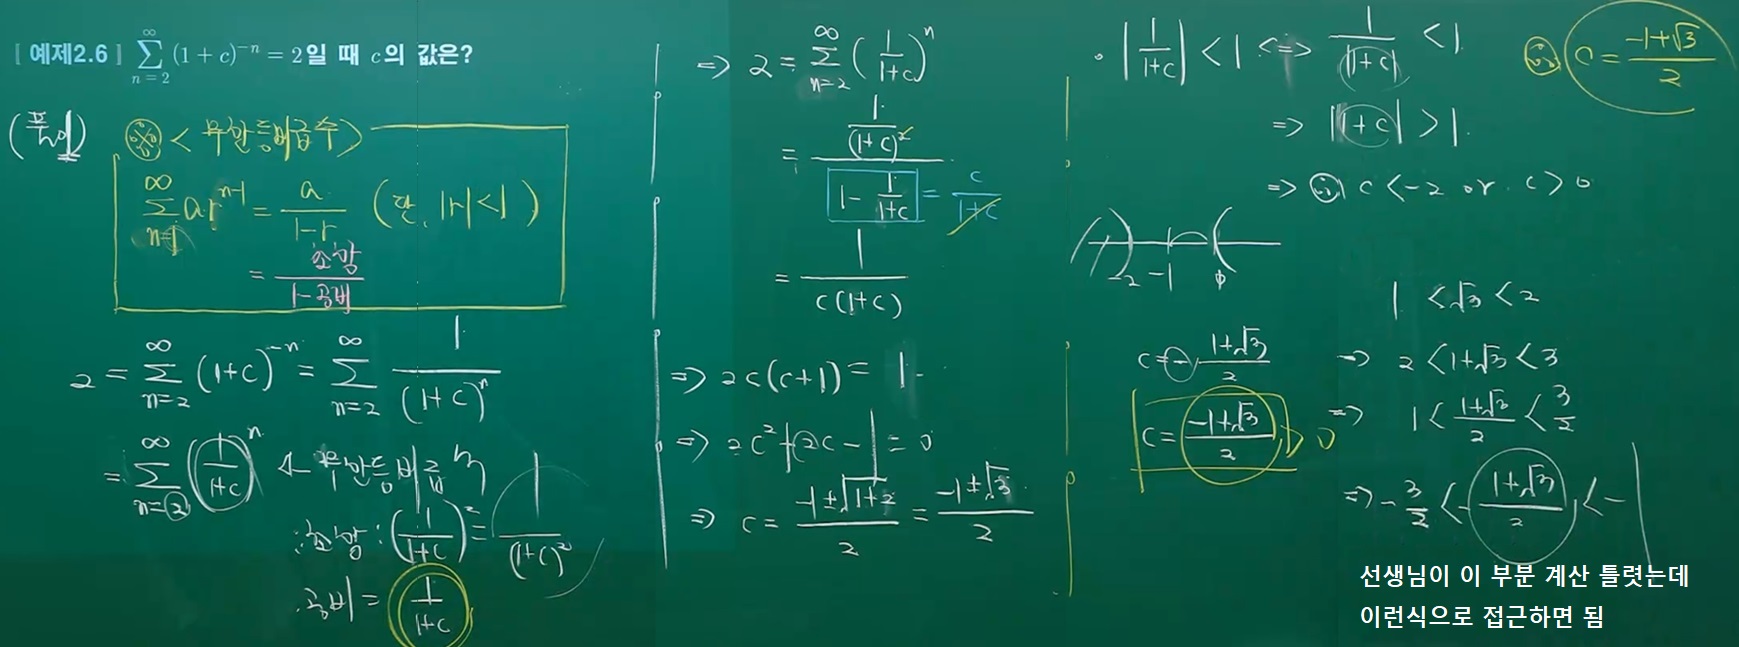 [예제2.6] \sum_{n=2}^{\infty} (1+c)^{-n} = 2일 때 c의 값은?
(풀이) ※ <무한등비급수>
\sum_{n=1}^{\infty} ar^{n-1} = \frac{a}{1-r} (단, |r|<1)
= \frac{초항}{1-공비}
2 = \sum_{n=2}^{\infty} (1+c)^{-n} = \sum_{n=2}^{\infty} \frac{1}{(1+c)^n}
= \sum_{n=2}^{\infty} (\frac{1}{1+c})^n ← 무한등비급수
초항 : (\frac{1}{1+c})^2 = \frac{1}{(1+c)^2}
공비 = \frac{1}{1+c}
⇒ 2 = \sum_{n=2}^{\infty} (\frac{1}{1+c})^n
= \frac{\frac{1}{(1+c)^2}}{1-\frac{1}{1+c}} = \frac{c}{1+c}
= \frac{1}{c(1+c)}
⇒ 2c(c+1) = 1
⇒ 2c^2+2c-1 = 0
⇒ c = \frac{-1±\sqrt{1+2}}{2} = \frac{-1±\sqrt{3}}{2}
|\frac{1}{1+c}| < 1 ⇔ \frac{1}{|1+c|} < 1
⇒ |1+c| > 1
⇒ ∴ c < -2 or c > 0
-2 -1 0
c = -\frac{1+\sqrt{3}}{2}
c = \frac{-1+\sqrt{3}}{2} > 0
∴ c = \frac{-1+\sqrt{3}}{2}
1 < \sqrt{3} < 2
⇒ 2 < 1+\sqrt{3} < 3
⇒ 1 < \frac{1+\sqrt{3}}{2} < \frac{3}{2}
⇒ -\frac{3}{2} < -\frac{1+\sqrt{3}}{2} < -1
선생님이 이 부분 계산 틀렷는데
이런식으로 접근하면 됨